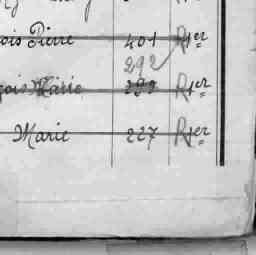 ois Pierre 401 R 1er
292
çois Marie 292 R 1er
Marie 227 R 1er